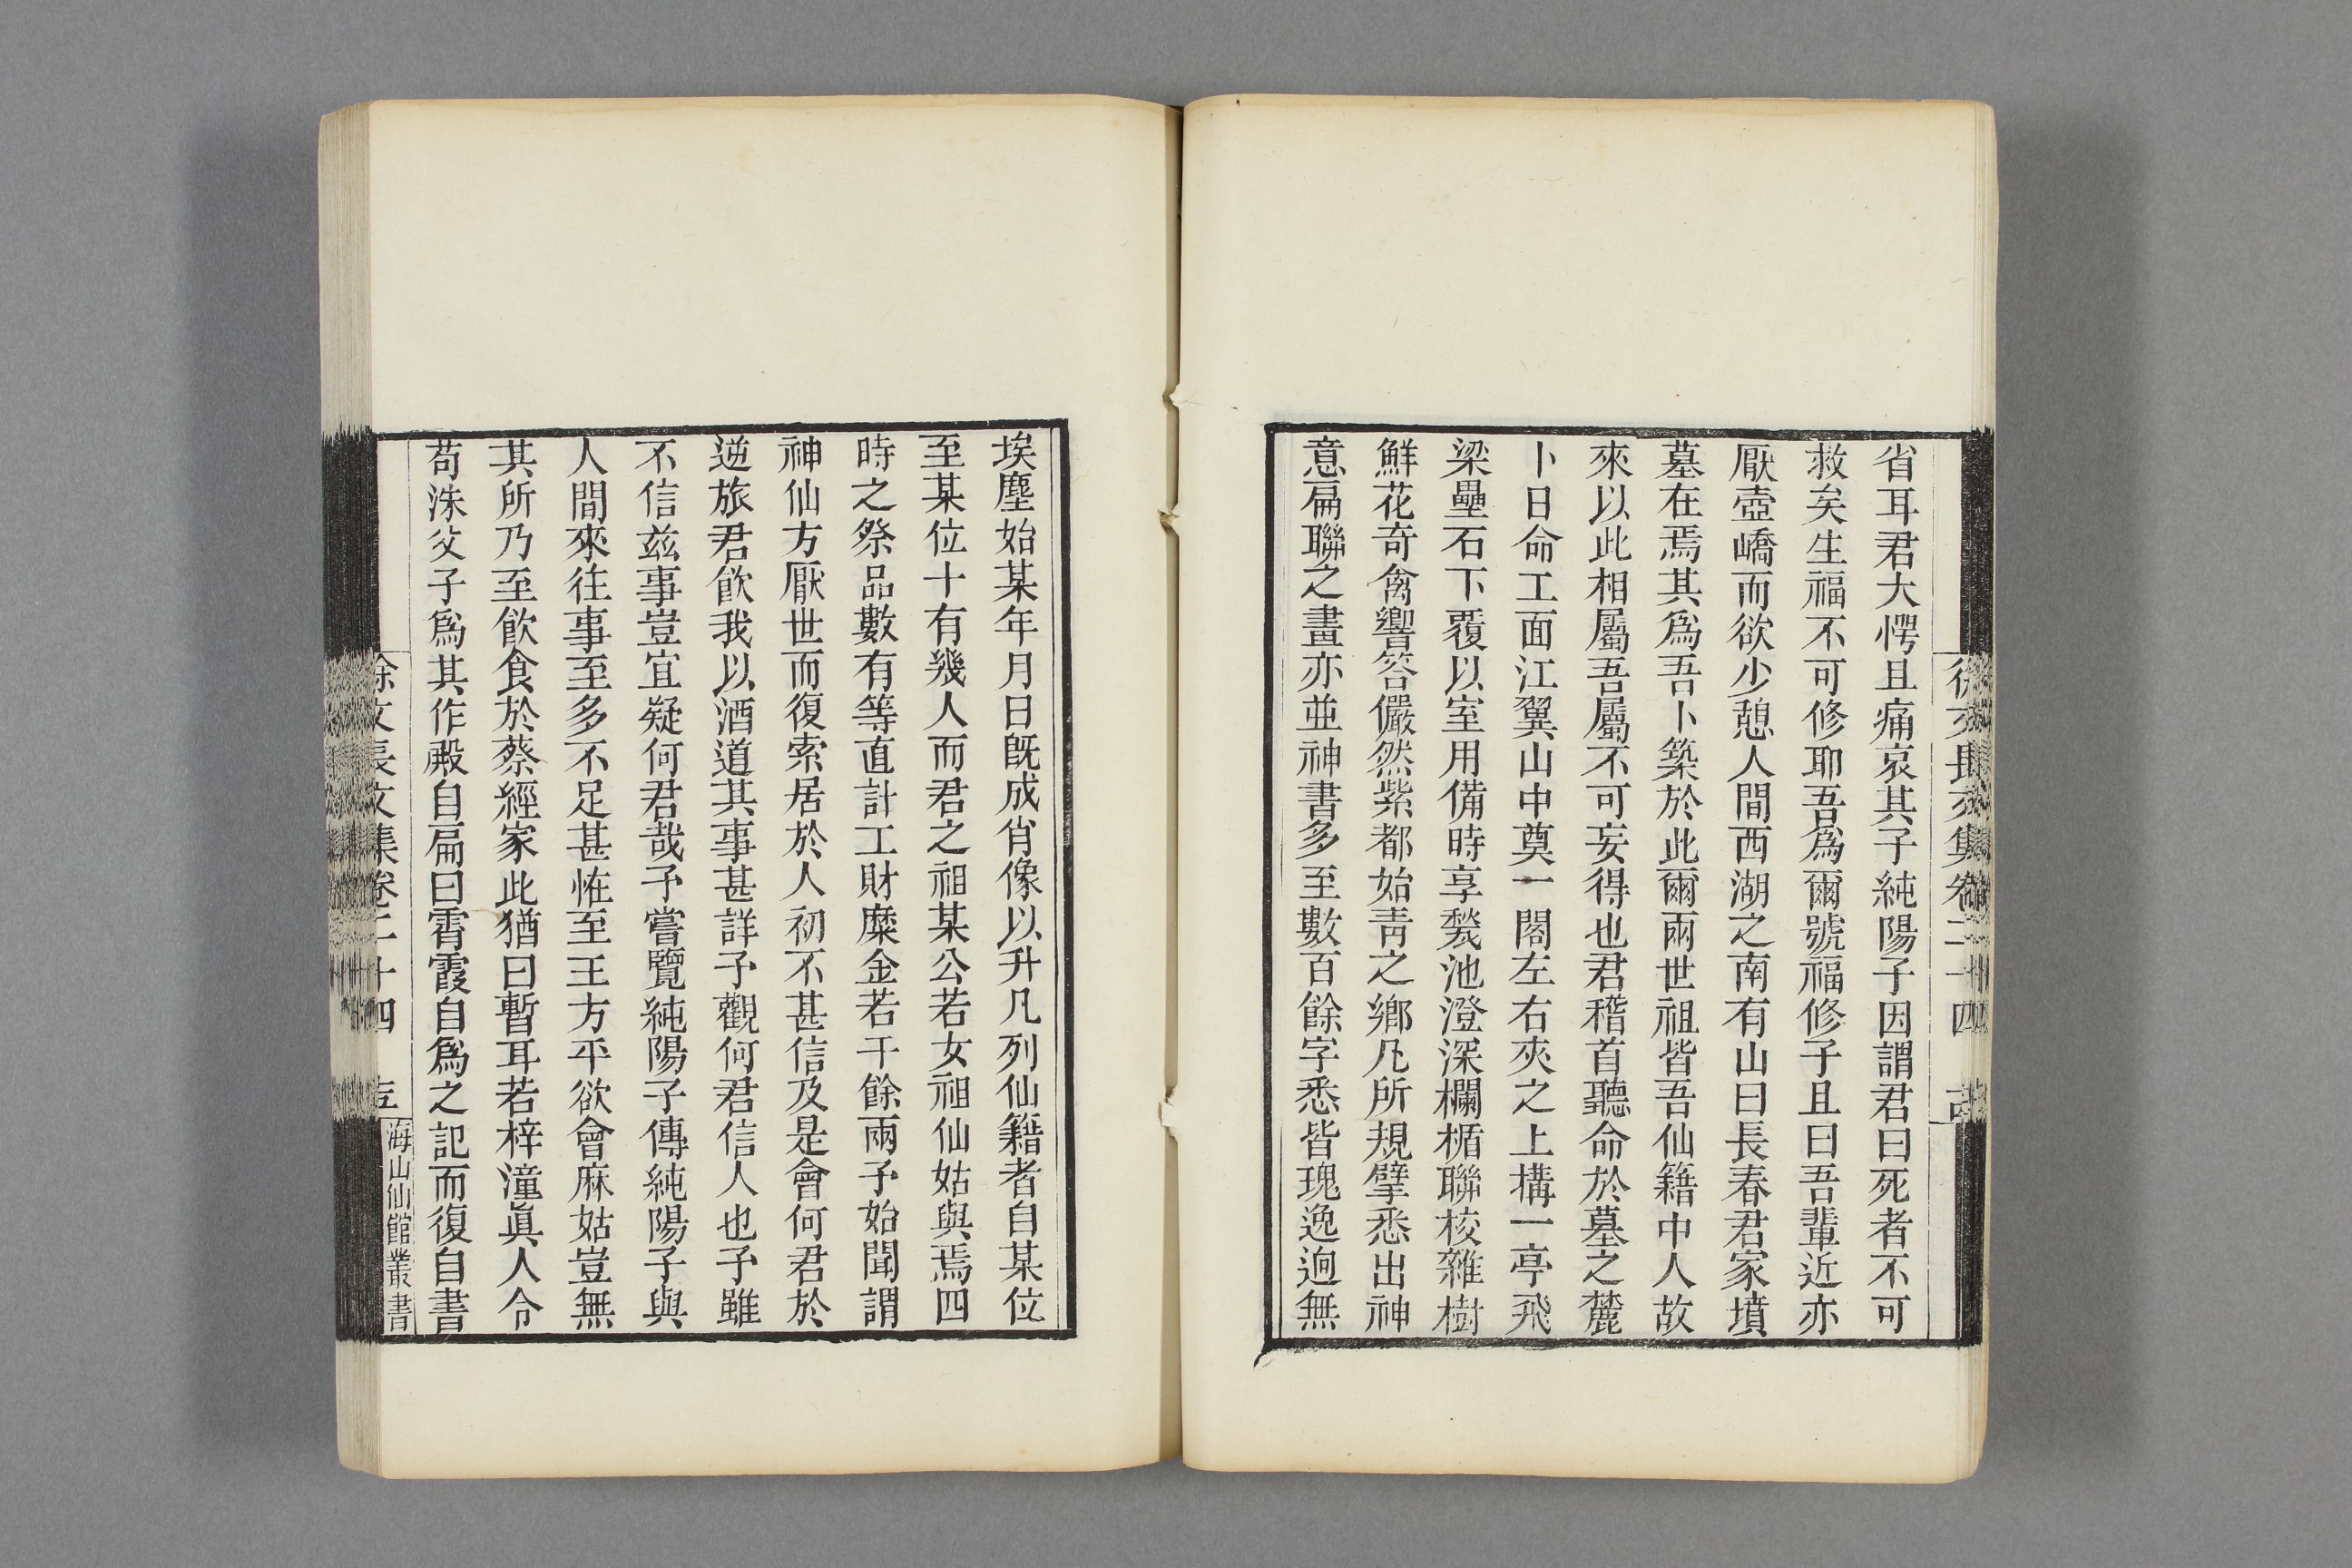 省耳君大愕且痛哀其子純陽子因謂君曰死者不可
救矣生福不可修耶吾爲爾號福修子且曰吾輩近亦
厭壺嶠而欲少憩人間西湖之南有山曰長春君家墳
墓在焉其爲吾卜築於此爾兩世祖皆吾仙籍中人故
來以此相屬吾屬不可妄得也君稽首聽命於墓之麓
卜日命工面江翼山中奠一閣左右夾之上搆一亭飛
梁壘石下覆以室用備時享甃池澄深欄楯聯校雜樹
鮮花奇禽響答儼然紫都始青之鄉凡所規擘悉出神
意扁聯之畫亦並神書多至數百餘字悉皆瑰逸迥無
埃塵始某年月日旣成肖像以升凡列仙籍者自某位
至某位十有幾人而君之祖某公若女祖仙姑與焉四
時之祭品數有等直計工財糜金若干餘兩予始聞謂
神仙方厭世而復索居於人初不甚信及是會何君於
逆旅君飲我以酒道其事甚詳予觀何君信人也予雖
不信兹事豈宜疑何君哉予嘗覽純陽子傳純陽子與
人間來往事至多不足甚恠至王方平欲會麻姑豈無
其所乃至飲食於蔡經家此猶曰暫耳若梓潼眞人令
苟洙父子爲其作殿自扁曰霄霞自爲之記而復自書
徐文長文集卷二十四
海山仙館叢書